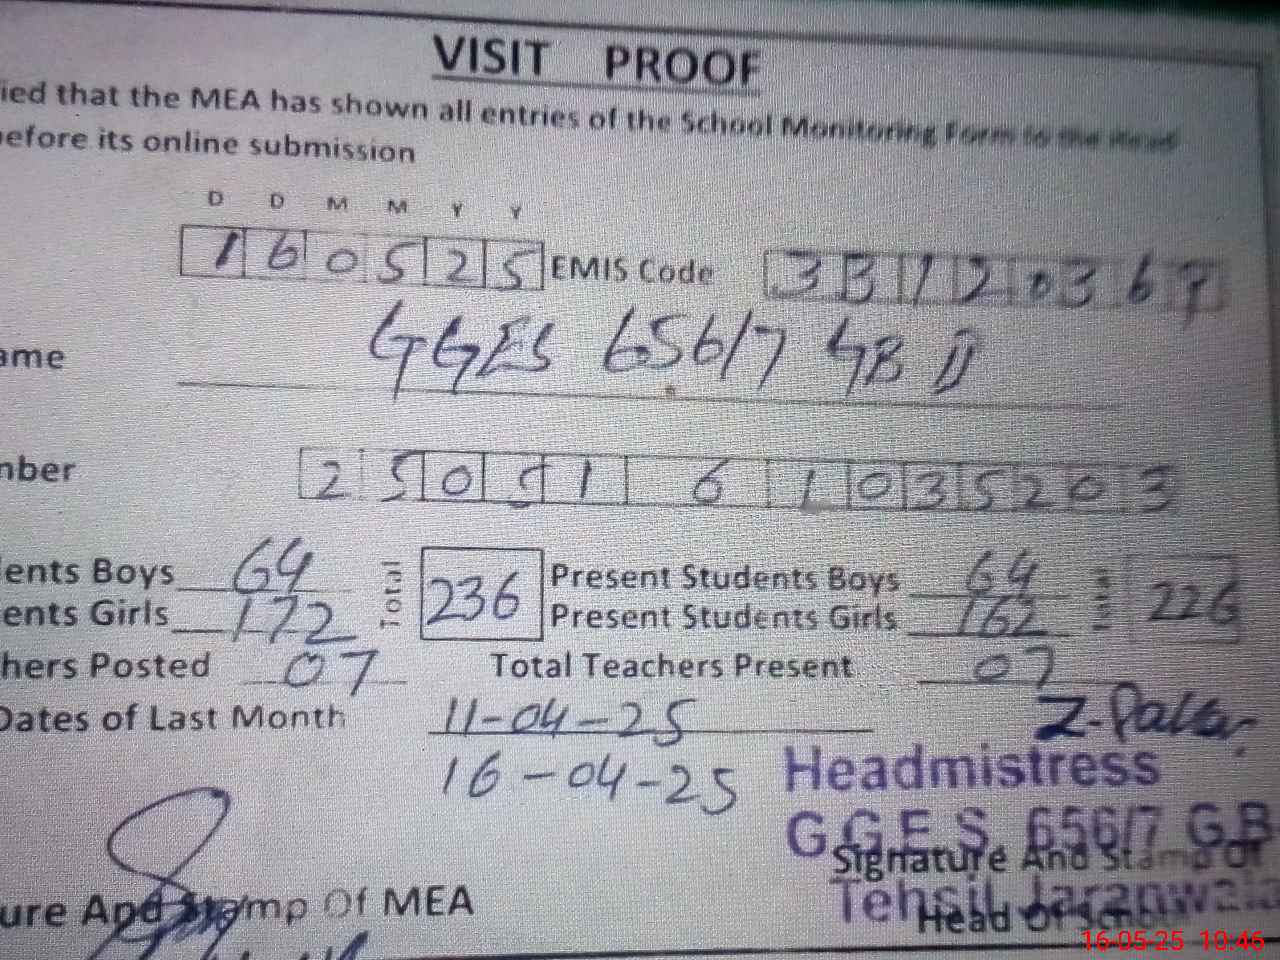 VISIT PROOF
ied that the MEA has shown all entries of the School Monitoring Form to the Head
before its online submission
D D M M Y Y
1 6 0 5 2 5 EMIS Code 3 3 1 2 0 3 6 7
ame GGES 656/7 GB D
nber 2 5 0 5 1 6 1 0 3 5 2 0 3
ents Boys 64 Total 236 Present Students Boys 64 226
ents Girls 172 Present Students Girls 162
hers Posted 07 Total Teachers Present 07
Dates of Last Month 11-04-25
16-04-25
Headmistress
G.G.E.S. 656/7 GB
Signature And Stamp Of
Tehsil Jaranwala
Head of School
ure And Stamp Of MEA
16-05-25 10:46